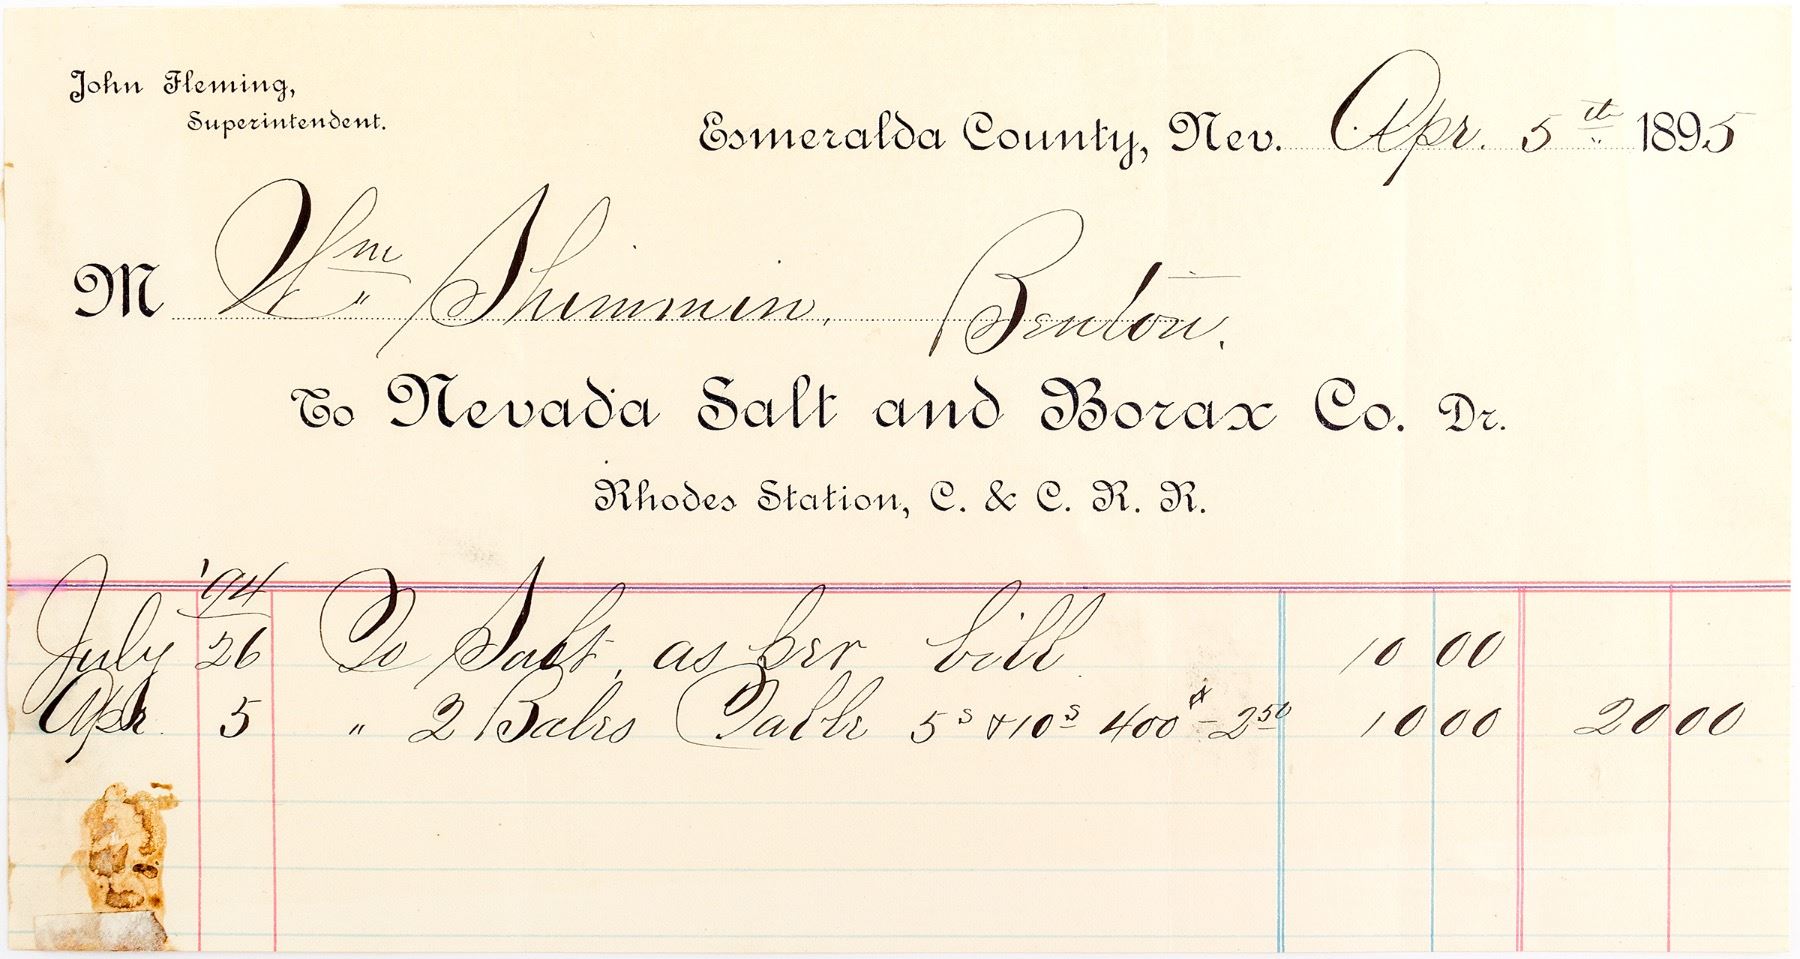 John Fleming,
Superintendent.
Esmeralda County, Nev. Apr. 5th 1895
M Wm Shimmin, Benton.
To Nevada Salt and Borax Co. Dr.
Rhodes Station, C. & C. R. R.
'94
July 26 To Salt, as per bill 10 00
Apr. 5 " 2 Bales Table 5s & 10s 400# - 2 50 10 00 20 00